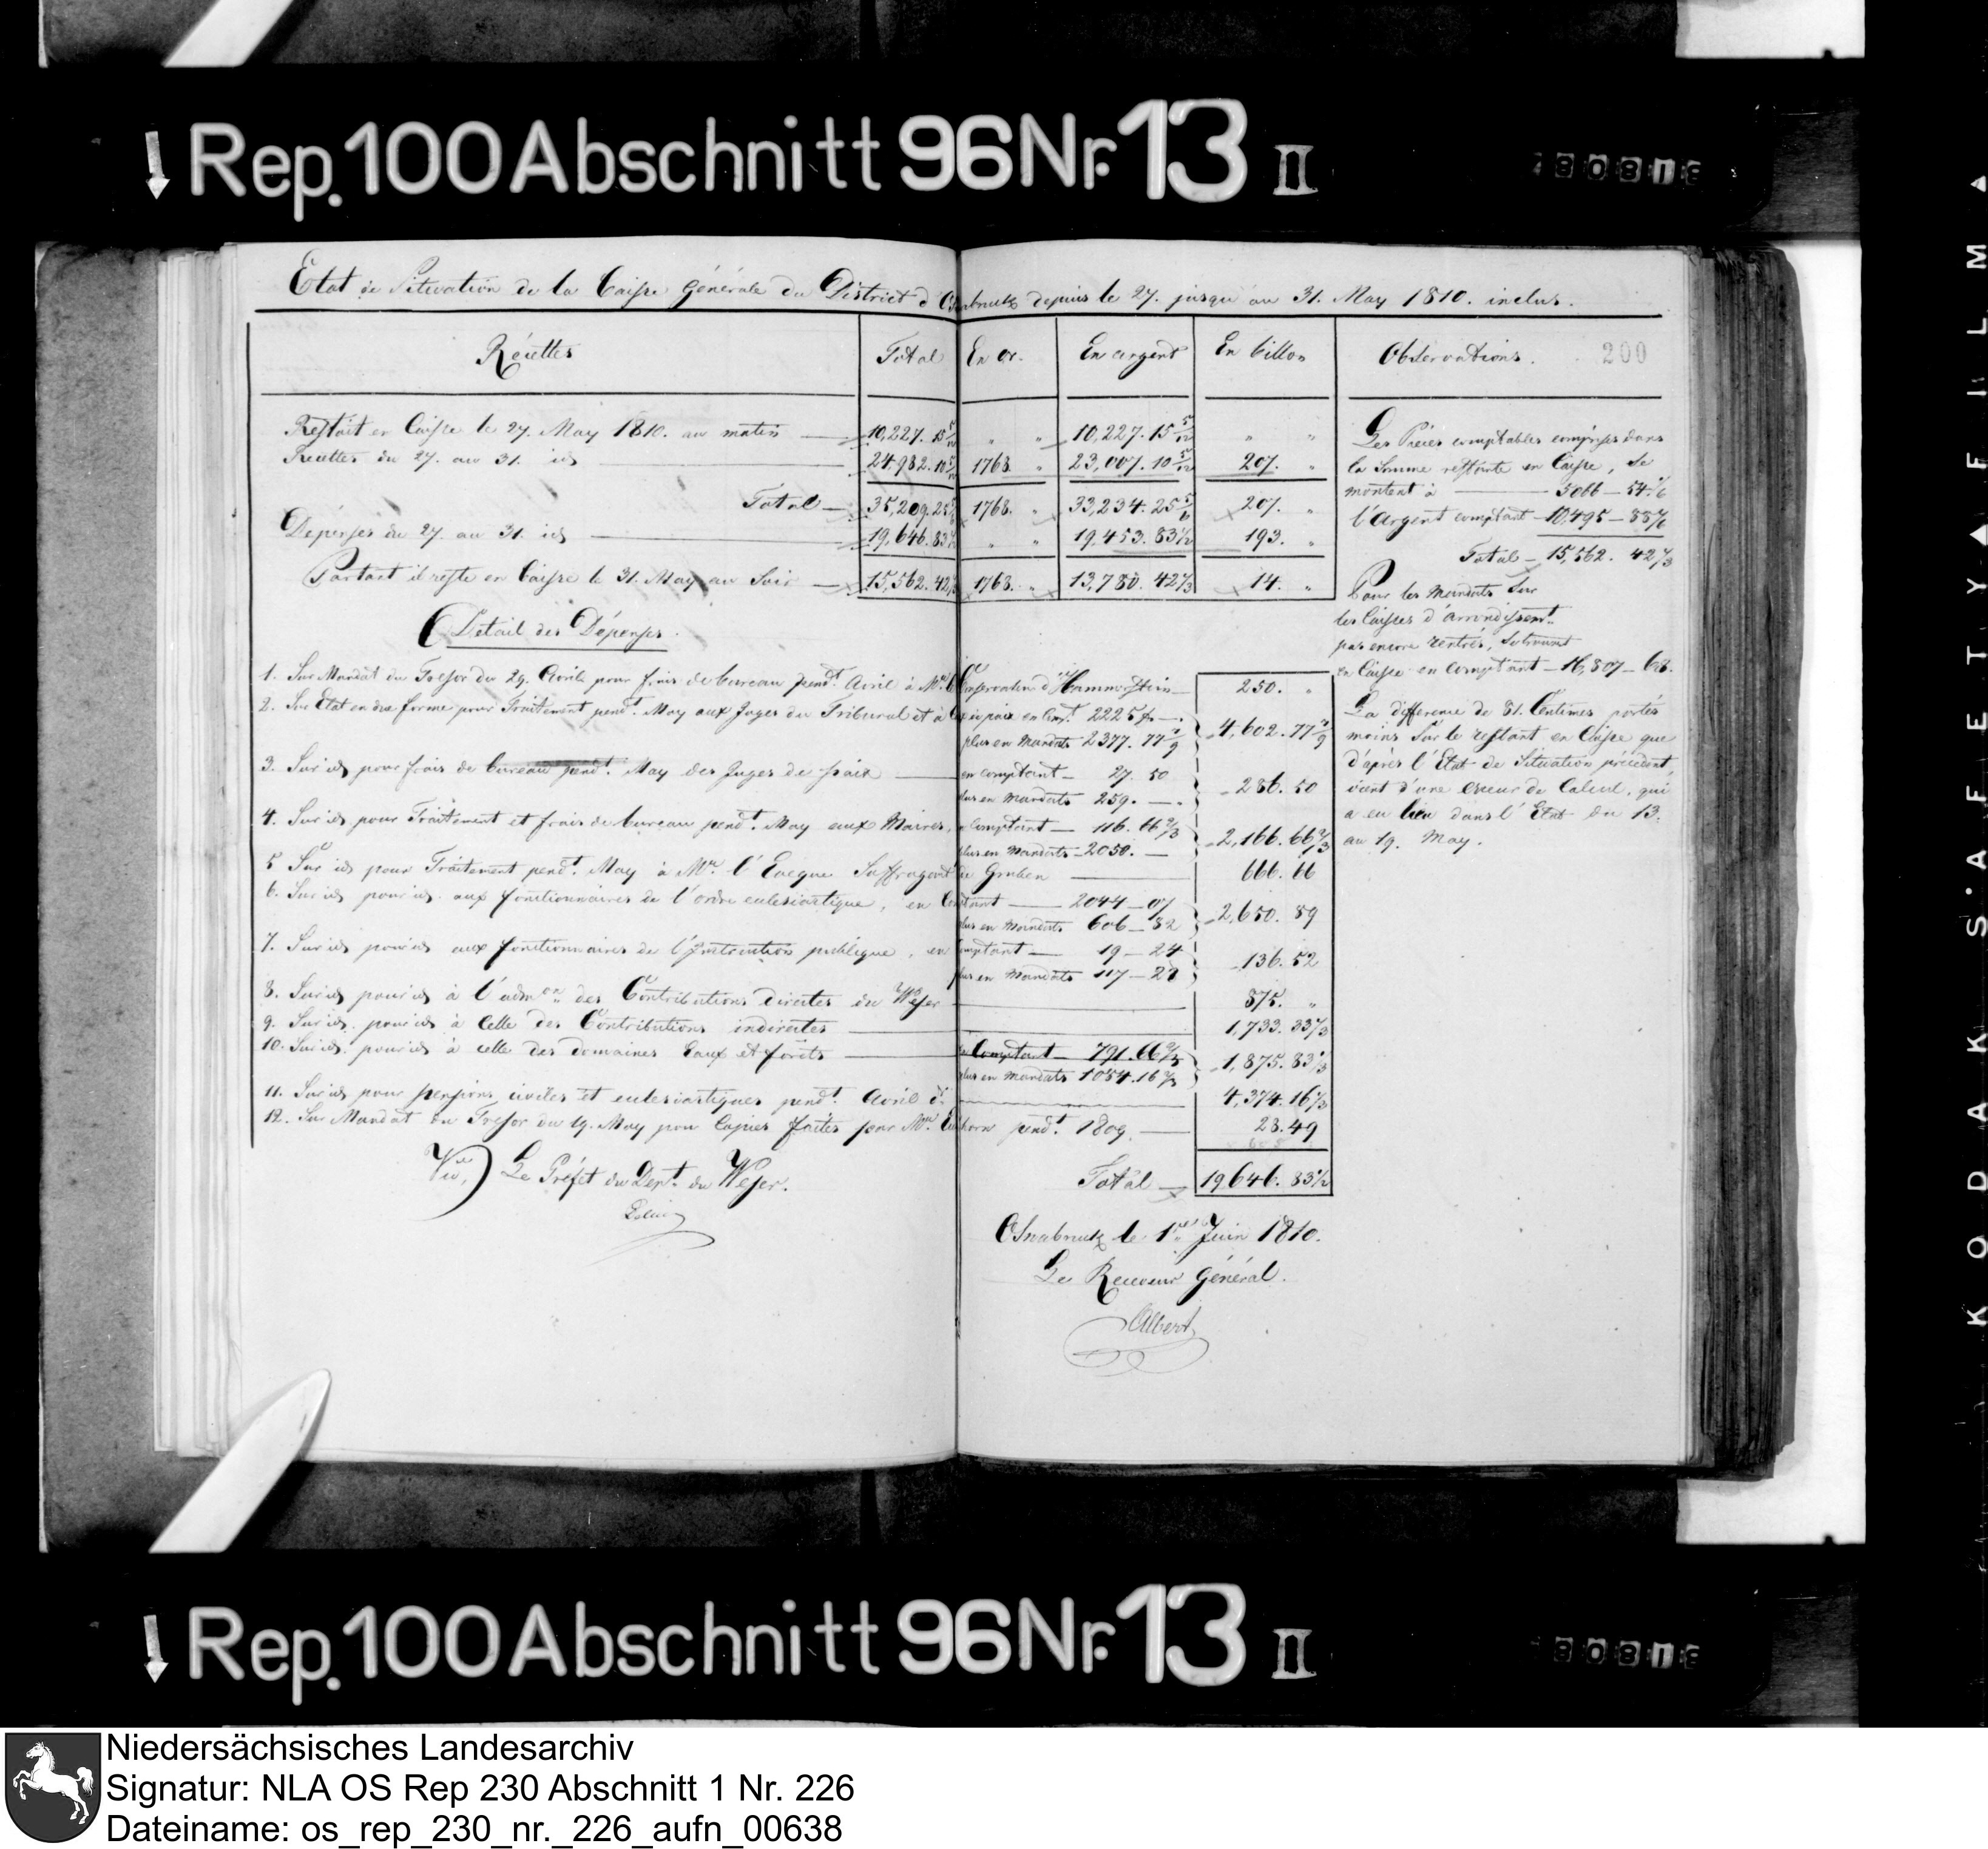 Rep. 100 Abschnitt 96 Nr. 13 II
Etat de Situation de la Caisse Générale du District d'Osnabruck depuis le 27. jusqu'au 31. May 1810. inclus.
Récettes Total En or. En argent En billon Observations. 200
Restait en Caisse le 27. May 1810. au matin — 10,227. 15 5/12 " " 10,227. 15 5/12 " "
Recettes du 27. au 31. id — 24,982. 10 5/12 1768 " 23,007. 10 5/12 207. "
Total — 35,209. 25 5/6 1768. " 33,234. 25 5/6 207. "
Dépenses du 27. au 31. id — 19,646. 83 1/2 " " 19,453. 83 1/2 193. "
Partant il reste en Caisse le 31. May au Soir — 15,562. 42 1/3 1768. " 13,780. 42 1/3 14. "
Les Pièces comptables comprises dans
la Somme restante en Caisse, se
montent à — 5066 — 54
l'Argent comptant — 10,495 — 88
Total — 15,562. 42 1/3
Pour les Mandats Sur
les Caisses d'arrondissemt.
pas encore rentrés, se trouvent
en Caisse en comptant — 16,807 — 68.
La difference de 81. Centimes portés
moins Sur le restant en Caisse que
d'après l'Etat de Situation précédent,
vient d'une erreur de Calcul, qui
a eu lieu dans l'Etat du 13.
au 19. May.
Détail des Dépenses.
1. Sur Mandat du Tresor du 29. Avril pour frais de bureau pendt. Avril à Mr. le Conservateur d'Hammerstein — 250. "
2. Sur Etat en due forme pour Traitement pendt. May aux Juges du Tribunal et à de paix en Compt. 2225 fr —
plus en Mandats 2377. 77 7/9 4,602. 77 7/9
3. Sur id pour frais de bureau pendt. May des Juges de paix — en comptant — 27. 50
plus en Mandats 259. — 286. 50
4. Sur id pour Traitement et frais de bureau pendt. May aux Maires, en Comptant — 116. 66 2/3
plus en Mandats — 2050. — 2,166. 66 2/3
5 Sur id pour Traitement pendt. May à Mr. l'Eveque Suffragant de Gruben — 666. 66
6. Sur id pour id. aux fonctionnaires de l'ordre eclesiastique, en Comptant — 2044 — 07
plus en Mandats 606 — 82 2,650. 89
7. Sur id pour id aux fonctionnaires de l'Instruction publique, en Comptant — 19 — 24
plus en Mandats 117 — 28 136. 52
8. Sur id pour id à l'admon. des Contributions directes du Weser — 875. "
9. Sur id. pour id à Celle des Contributions indirectes — 1,733. 33 1/3
10. Sur id. pour id à celle des domaines Eaux et forêts — en Comptant — 791. 66 2/3
plus en Mandats 1084. 16 2/3 1,875. 83 1/3
11. Sur id pour pensions civiles et eclesiastiques pendt. Avril — 4,374. 16 2/3
12. Sur Mandat du Tresor du 19. May pour Copies faites par Mr. pendt. 1809. — 28. 49
Total — 19,646. 83 1/2
Vu, Le Préfet du Dept. du Weser.
Osnabruck le 1er. Juin 1810.
Le Receveur Général.
Albert
Rep. 100 Abschnitt 96 Nr. 13 II
KODAK SAFETY FILM
Niedersächsisches Landesarchiv
Signatur: NLA OS Rep 230 Abschnitt 1 Nr. 226
Dateiname: os_rep_230_nr._226_aufn_00638